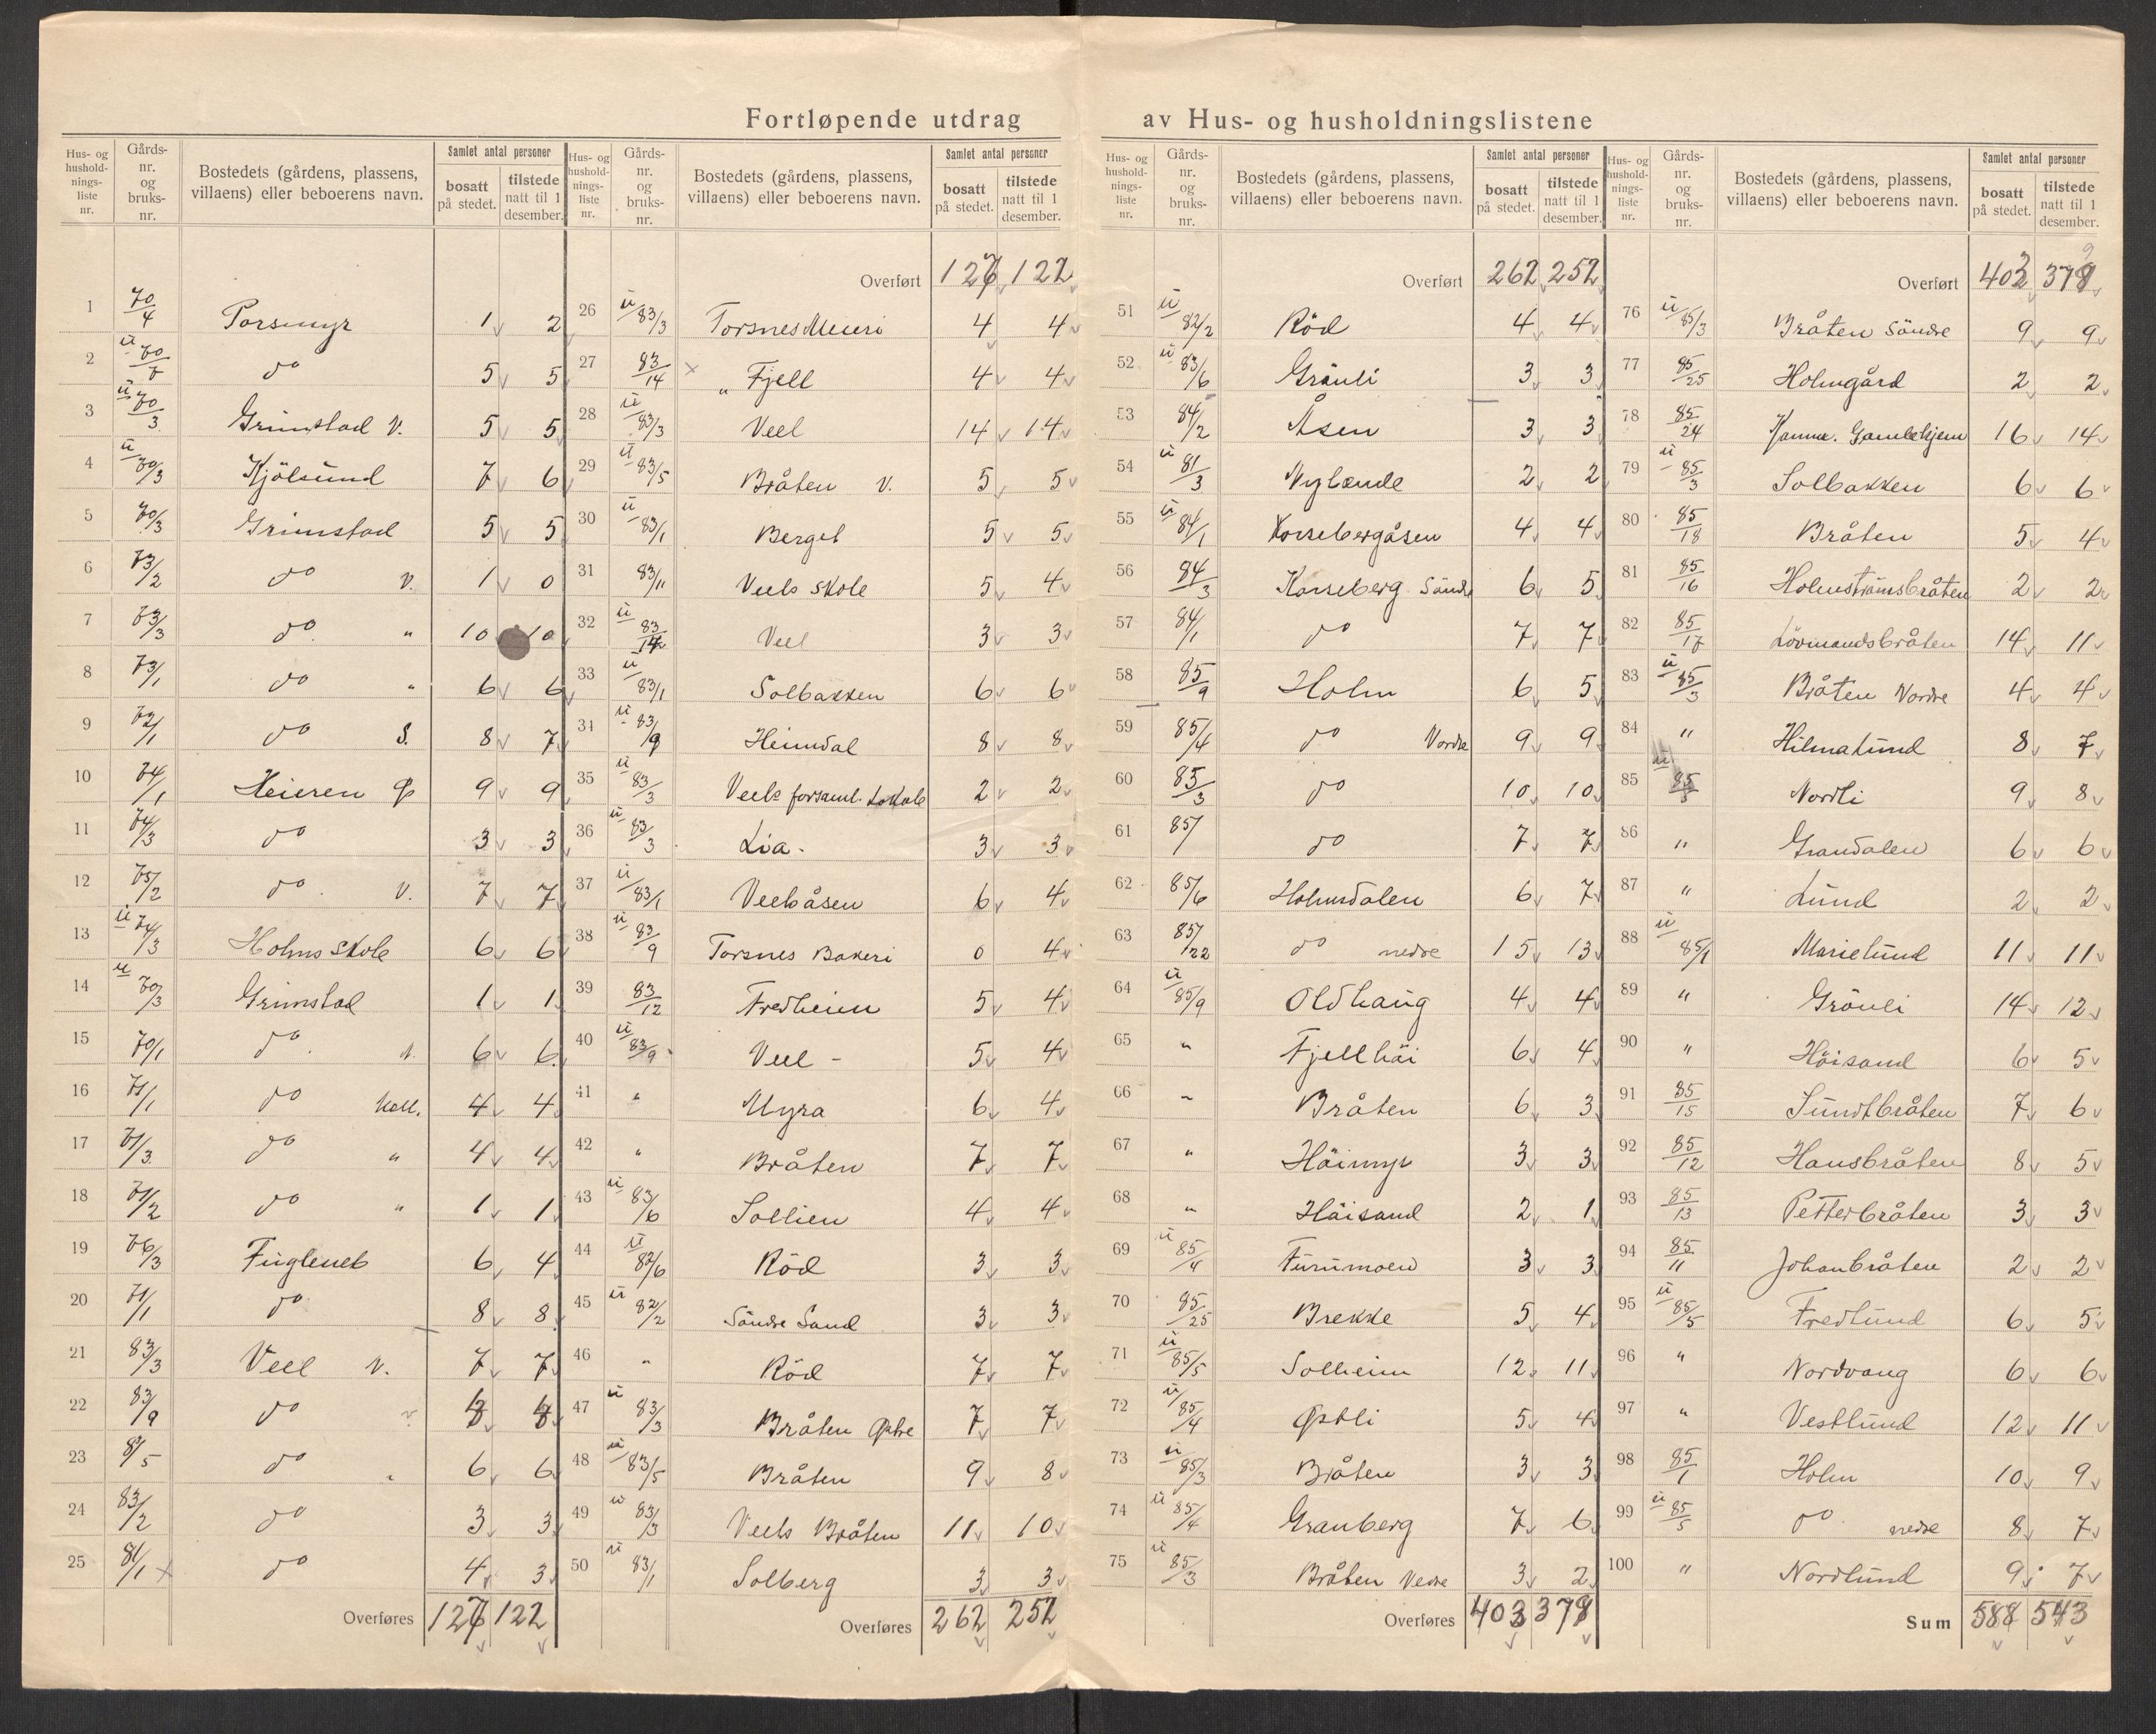 Fortløpende utdrag av Hus- og husholdningslistene
Hus- og husholdnings-liste nr. | Gårds-nr. og bruks-nr. | Bostedets (gårdens, plassens, villaens) eller beboerens navn. | Samlet antal personer | bosatt på stedet. | tilstede natt til 1 desember.
1 70/4 Porsmyr 1 2
2 u 70/ do 5 5
3 u 70/3 Grimstad V. 5 5
4 u 70/3 Kjölsund 7 6
5 70/3 Grimstad 5 5
6 73/2 do V. 1 0
7 73/3 do " 10 10
8 73/1 do " 6 6
9 72/1 do S. 8 7
10 74/1 Heieren Ø 9 9
11 74/3 do 3 3
12 75/2 do V. 7 7
13 u 74/3 Holms skole 6 6
14 u 70/3 Grimstad 1 1
15 70/1 do N. 6 6
16 71/1 do Mell. 4 4
17 71/3 do " 4 4
18 71/2 do " 1 1
19 76/3 Fugleneb 6 4
20 71/1 do 8 8
21 83/3 Veel N. 7 7
22 83/9 do 8 8
23 81/5 do " 6 6
24 83/2 do 3 3
25 81/1 × do 4 3
Overføres 127 122
Hus- og husholdnings-liste nr. | Gårds-nr. og bruks-nr. | Bostedets (gårdens, plassens, villaens) eller beboerens navn. | Samlet antal personer | bosatt på stedet. | tilstede natt til 1 desember.
Overført 127 122
26 u 83/3 Torsnes Meieri 4 4
27 83/14 × " Fjell 4 4
28 u 83/3 Veel 14 14
29 u 83/5 Bråten V. 5 5
30 u 83/1 Berget 5 5
31 83/11 Veels skole 5 4
32 u 83/ Veel 3 3
33 u 83/1 Solbakken 6 6
34 u 83/9 Heimdal 8 8
35 u 83/3 Veels forsaml. Lokale 2 2
36 u 83/3 Lia 3 3
37 u 83/1 Veelsåsen 6 4
38 u 83/9 Torsnes Bakeri 0 4
39 83/12 Fredheim 5 4
40 u 83/9 Veel 5 4
41 " Myra 6 4
42 " Bråten 7 7
43 u 83/6 Sollien 4 4
44 u 82/6 Röd 3 3
45 u 82/2 Söndre Sand 3 3
46 " Röd 7 7
47 u 83/3 Bråten Østre 7 7
48 u 83/5 Bråten 9 8
49 u 83/3 Veels Bråten 11 10
50 u 83/1 Solberg 3 3
Overføres 262 252
Hus- og husholdnings-liste nr. | Gårds-nr. og bruks-nr. | Bostedets (gårdens, plassens, villaens) eller beboerens navn. | Samlet antal personer | bosatt på stedet. | tilstede natt til 1 desember.
Overført 262 252
51 u 82/2 Röd 4 4
52 u 83/6 Grönli 3 3
53 84/2 Åsen 3 3
54 u 81/3 Nylænde 2 2
55 u 84/1 Korsebergåsen 4 4
56 84/3 Korseberg Söndr 6 5
57 84/1 do 7 7
58 85/9 Holm 6 5
59 85/4 do Nordre 9 9
60 85/3 do 10 10
61 85/ do 7 7
62 85/6 Holmsdalen 6 7
63 85/22 do nedre 15 13
64 u 85/9 Oldhaug 4 4
65 " Fjellhöi 6 4
66 " Bråten 6 3
67 " Höimyr 3 3
68 " Höisand 2 1
69 u 85/4 Furumoen 3 3
70 85/25 Brekke 5 4
71 u 85/5 Solheim 12 11
72 u 85/4 Østli 5 4
73 u 85/3 Bråten 3 3
74 u 85/4 Granberg 7 6
75 u 85/3 Bråten Nedre 3 2
Overføres 403 378
Hus- og husholdnings-liste nr. | Gårds-nr. og bruks-nr. | Bostedets (gårdens, plassens, villaens) eller beboerens navn. | Samlet antal personer | bosatt på stedet. | tilstede natt til 1 desember.
Overført 403 379
76 u 85/3 Bråten Söndre 9 9
77 85/25 Holmgård 2 2
78 85/24 Komm. Gamlehjem 16 14
79 u 85/3 Solbakken 6 6
80 85/18 Bråten 5 4
81 85/16 Holmströmsbråten 2 2
82 85/17 Lövmandsbråten 14 11
83 u 85/3 Bråten Nordre 4 4
84 " Hilmalund 8 7
85 u 85/5 Nordli 9 8
86 " Grandalen 6 6
87 " Lund 2 2
88 u 85/1 Marielund 11 11
89 " Grönli 14 12
90 " Höisand 6 5
91 85/15 Sundtbråten 7 6
92 85/12 Hansbråten 8 5
93 85/13 Petterbråten 3 3
94 85/11 Johanbråten 2 2
95 u 85/5 Fredlund 6 5
96 " Nordvang 6 6
97 " Vestlund 12 11
98 85/1 Holm 10 9
99 u 85/5 do nedre 8 7
100 " Nordlund 9 7
Sum 588 543